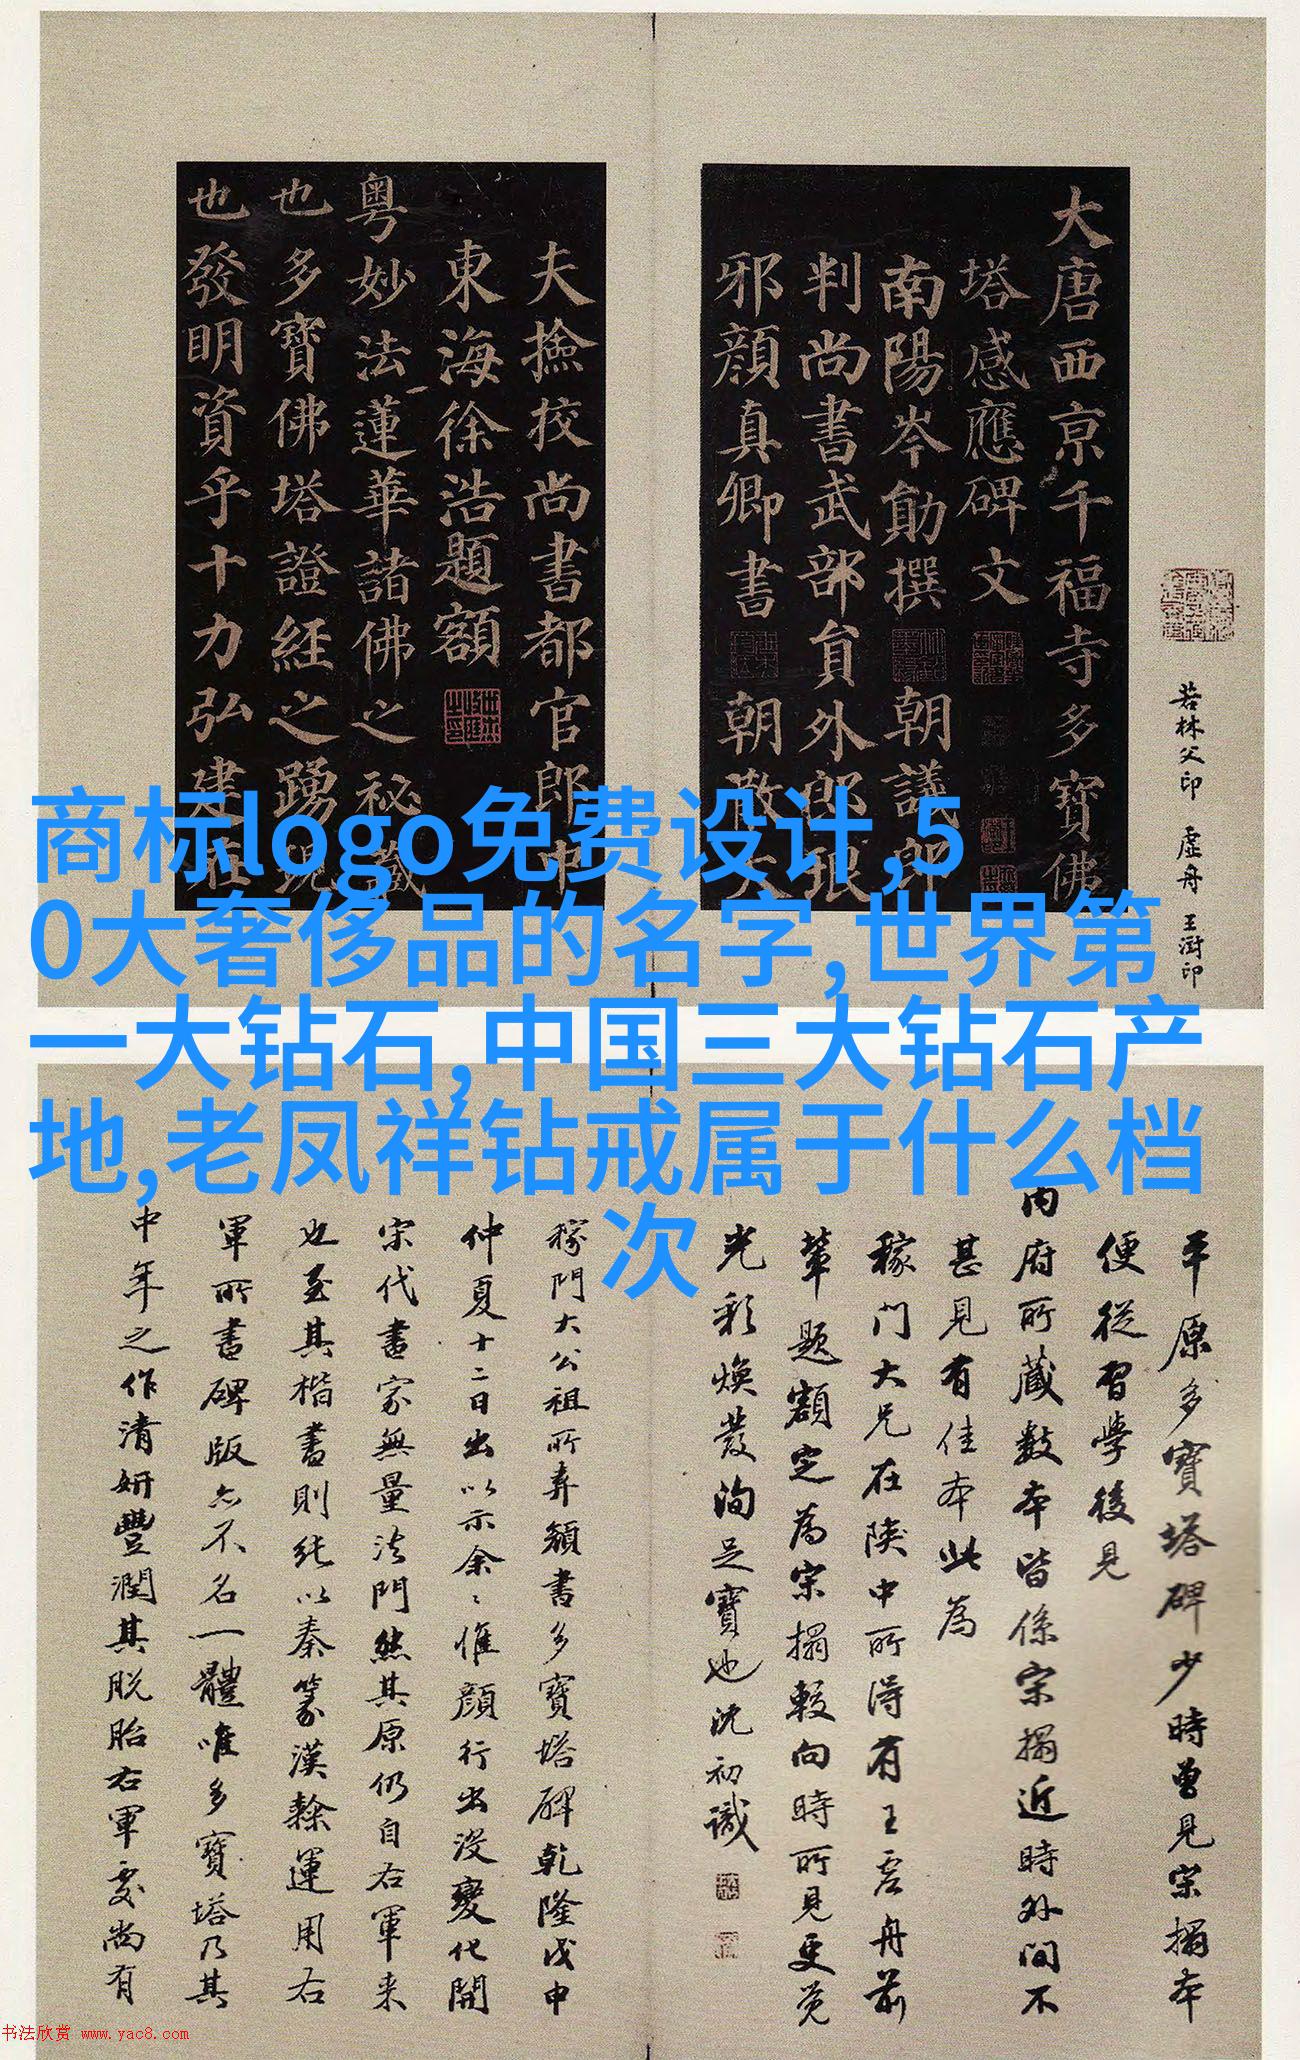 大唐西京千福寺多寶佛
塔感應碑文
南陽岑勛撰 朝議郎
判尚書武部員外郎琅
邪顏真卿書 朝散大
夫撿挍尚書都官郎中
東海徐浩題額
粵妙法蓮華諸佛之祕藏
也多寶佛塔證經之踴現
也發明資乎十力弘建在
若林父印 虛舟 王澍印
商标logo免费设计,5
0大奢侈品的名字,世界第
一大钻石,中国三大钻石产
地,老凤祥钻戒属于什么档
次
平原多寶塔碑少時曾見宋搨本
便從習學後見
內府所藏數本皆係宋搨近時外間不
甚見有佳本此為
稼门大兄在陕中所得有王虚舟前
輩題額定為宋搨較向時所見更覺
光彩焕發洵足寶也沈初識
稼門大公祖所弆顏書多寶塔碑乾隆戊申
仲夏十二日出以示余余惟顏行出没變化開
宋代書家無量法門然其原仍自右軍来
也至其楷書則純以秦篆漢隸運用右
軍所書碑版亦不名一體唯多寶塔乃其
中年之作清妍豐潤其脱胎右軍處尚有
书法欣赏 www.yac8.com